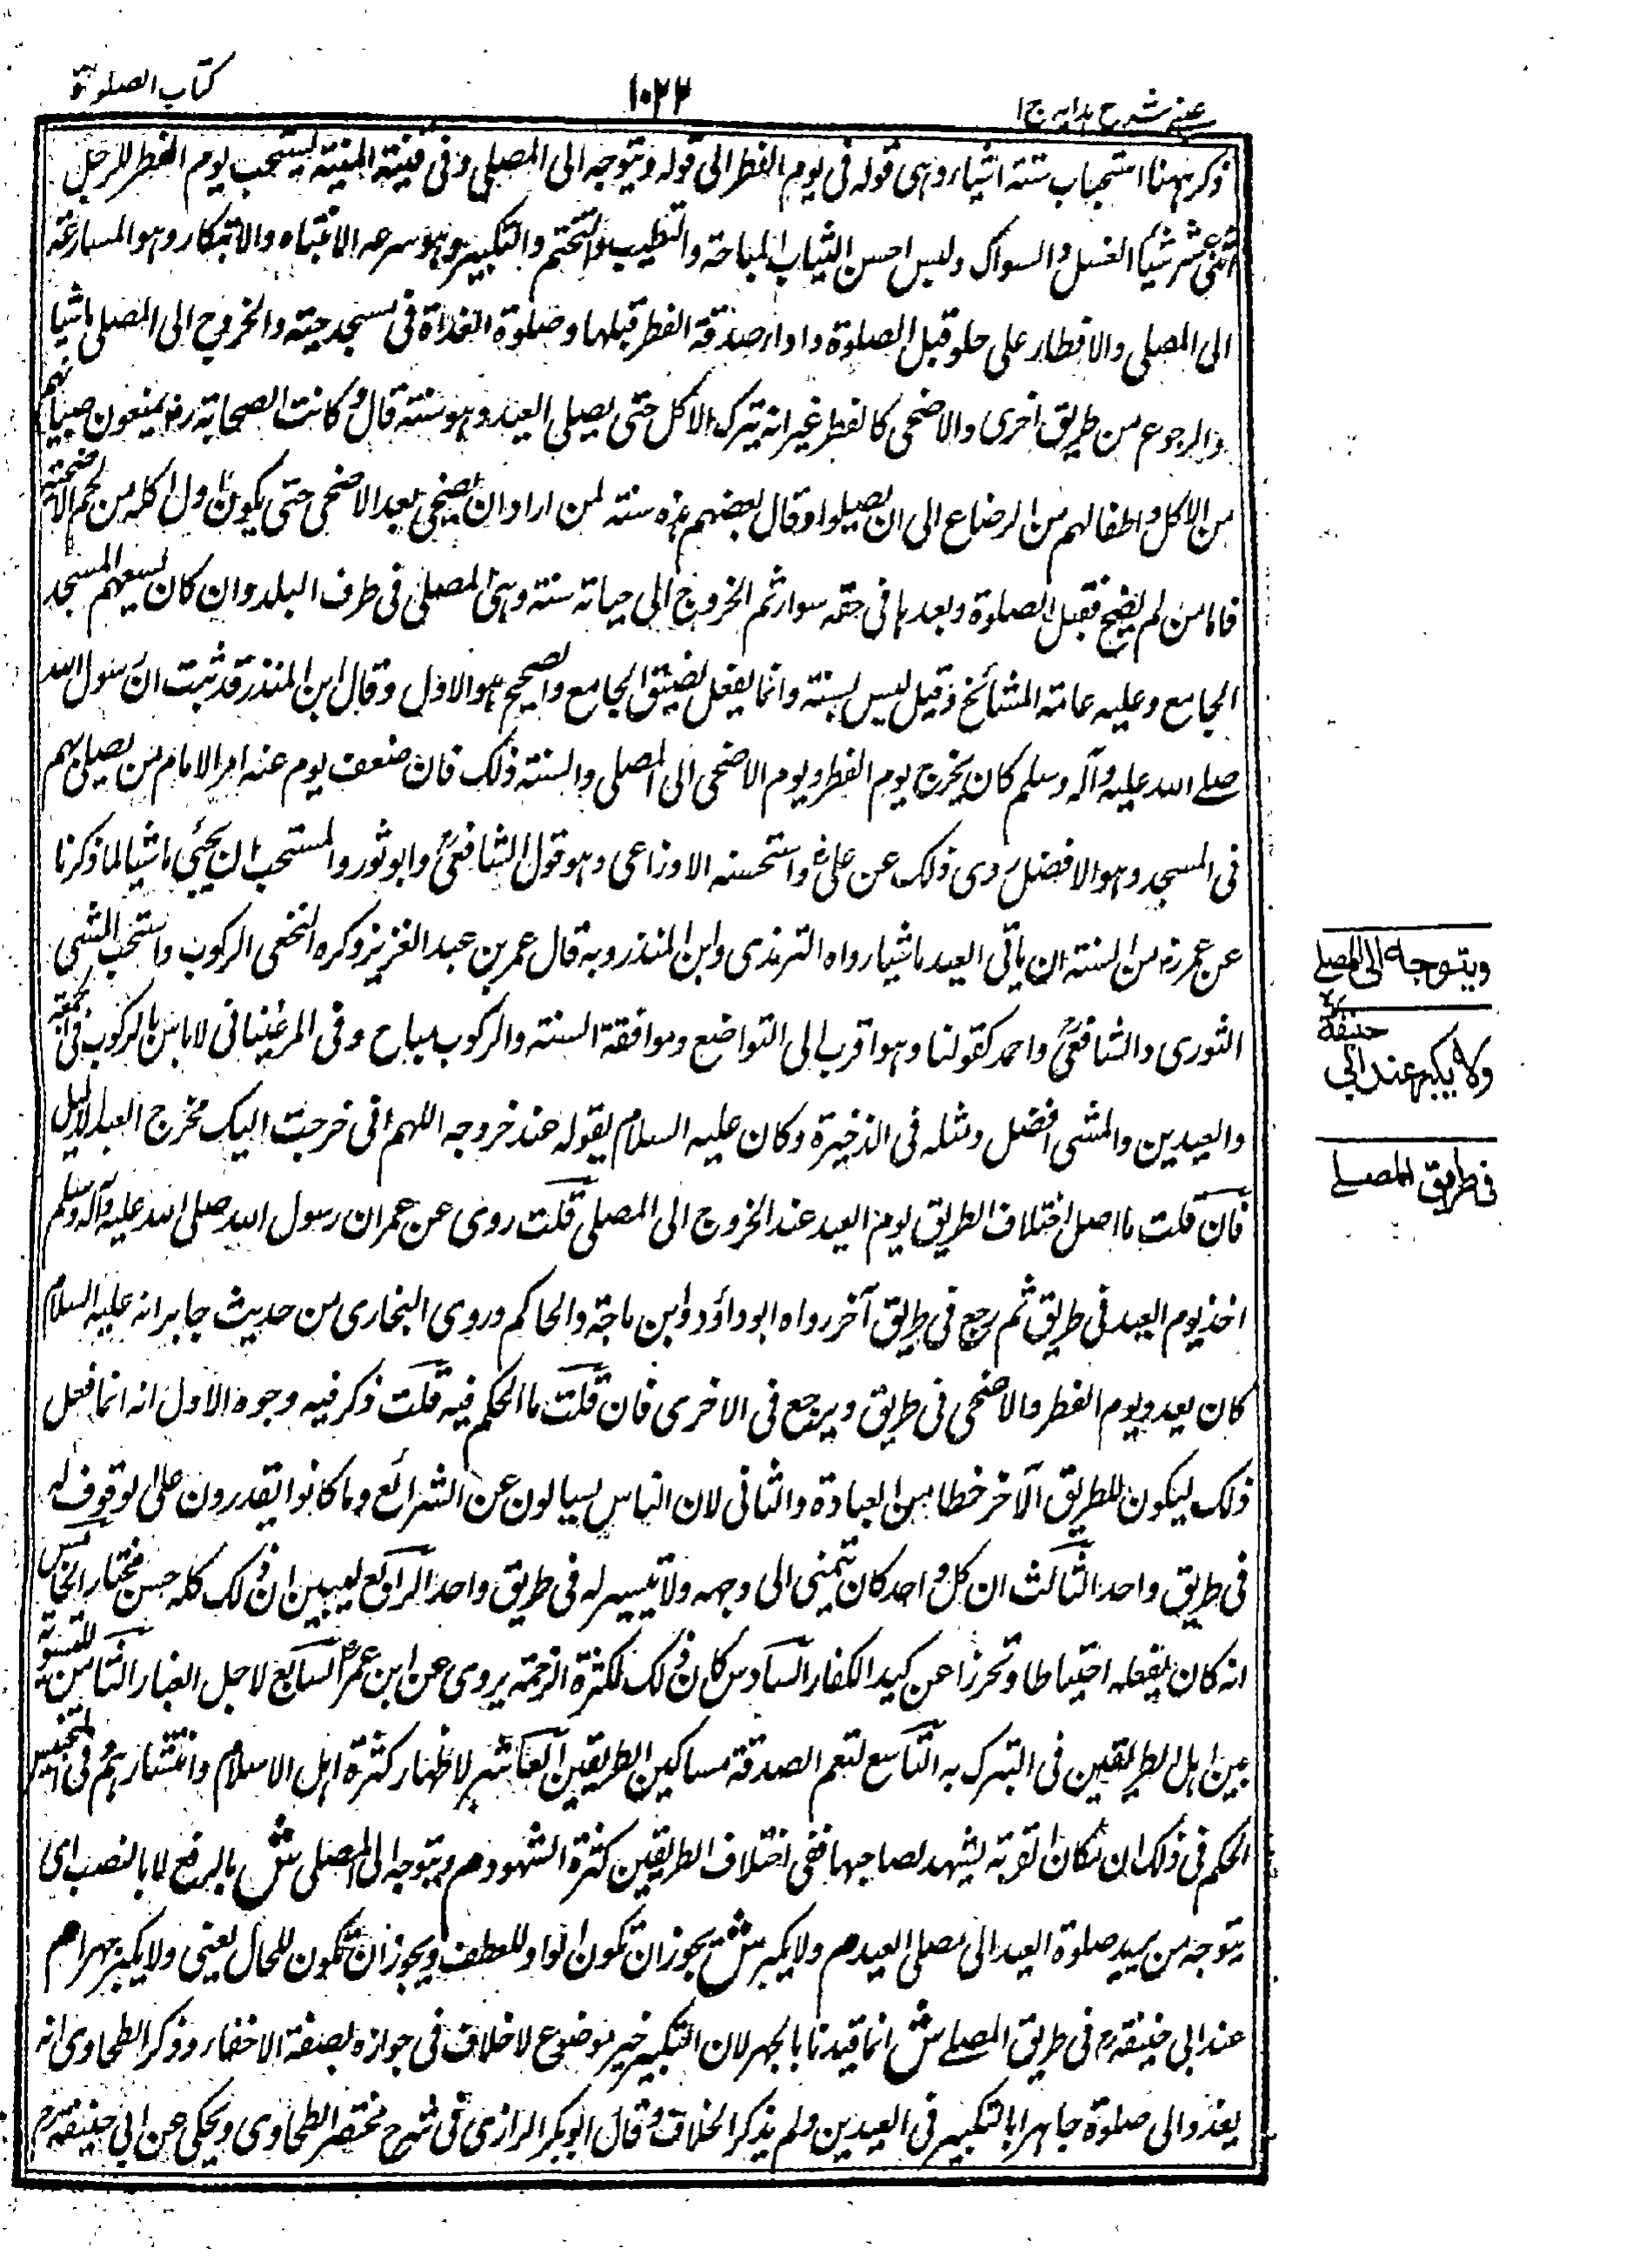 عينے شرح ہدايہ ج١
١٠٢٢
كتاب الصلوة
ذكر ہہنا استحباب ستة اشياء وہى قوله فى يوم الفطر الى قوله ويتوجه الى المصلى وفى قنية المنية يستحب يوم الفطر للرجل
اثنى عشر شيئا الغسل والسواك ولبس احسن الثياب المباحة والتطيب والتختم والتبكير وہو سرعة الانتباه والابتكار وہو المسارعة
الى المصلى والافطار على حلو قبل الصلوة واداء صدقة الفطر قبلہا وصلوة الغداة فى مسجد حيته والخروج الى المصلى ماشيا
والرجوع من طريق اخرى والاضحى كالفطر غير انه يترك الاكل حتى يصلى العيد وہو سنة قال وكانت الصحابة رض يمنعون صبيانہم
من الاكل واطفالہم من الرضاع الى ان يصلوا وقال بعضہم ہذه سنة لمن اراد ان يضحى بعد الاضحى حتى يكون اول اكله من لحم الاضحية
فاما من لم يضح فقبل الصلوة وبعدہا فى حقه سواء ثم الخروج الى جبانة سنة وہى المصلى فى طرف البلد وان كان يسعہم المسجد
الجامع وعليه عامة المشائخ وقيل ليس بسنة وانما يفعل لضيق الجامع والصحيح ہو الاول وقال ابن المنذر قد ثبت ان رسول الله
صلے الله عليه وآله وسلم كان يخرج يوم الفطر ويوم الاضحى الى المصلى والسنة ذلك فان ضعف يوم عنه امر الامام من يصلى بہم
فى المسجد وہو الافضل روى ذلك عن على رض واستحسنه الاوزاعى وہو قول الشافعى رح وابو ثور والمستحب ان يجئى ماشيا لما ذكرنا
عن عمر رض من السنة ان ياتى العيد ماشيا رواه الترمذى وابن المنذر وبه قال عمر بن عبد العزيز وكره النخعى الركوب واستحب المشى
الثورى والشافعى رح واحمد كقولنا وہو اقرب الى التواضع وموافقة السنة والركوب مباح وفى المرغينانى لا باس بالركوب فى الجمعة
والعيدين والمشى افضل ومثله فى الذخيرة وكان عليه السلام يقوله عند خروجه اللہم انى خرجت اليك مخرج العبد الذليل
فان قلت ما اصل اختلاف الطريق يوم العيد عند الخروج الى المصلى قلت روى عن عمر ان رسول الله صلى الله عليه وآله وسلم
اخذ يوم العيد فى طريق ثم رجع فى طريق آخر رواه ابو داؤد وابن ماجة والحاكم وروى البخارى من حديث جابر انه عليه السلام
كان يعدو يوم الفطر والاضحى فى طريق ويرجع فى الاخرى فان قلت ما الحكم فيه قلت ذكر فيه وجوه الاول انه انما فعل
ذلك ليكون للطريق الآخر خطا من العبادة والثانى لان الناس يسالون عن الشرائع وما كانوا يقدرون على الوقوف له
فى طريق واحد الثالث ان كل واحد كان يتمنى الى وجہه ولا يتيسر له فى طريق واحد الرابع ليبين ان ذلك كله حسن مختار الخامس
انه كان يفعله احتياطا وتحرزا عن كيد الكفار السادس كان ذلك لكثرة الزحمة يروى عن ابن عمر رض السابع لاجل الغبار الثامن للتسوية
بين اہل الطريقين فى التبرك به التاسع لتعم الصدقة مساكين الطريقين العاشر لاظہار كثرة اہل الاسلام وانتشارہم وفى التجنيس
الحكم فى ذلك ان مكان القربة يشہد لصاحبہا ففى اختلاف الطريقين كثرة الشہود م ويتوجه الى المصلى ش بالرفع لا بالنصب اى
يتوجه من يريد صلوة العيد الى مصلى العيد م ولا يكبر ش يجوز ان تكون الواو للعطف ويجوز ان تكون للحال يعنى ولا يكبر جہرا م
عند ابى حنيفة رح فى طريق المصلے ش انما قيدنا بالجہر لان التكبير خير موضوع لا خلاف فى جوازه بصفة الاخفاء وذكر الطحاوى انه
يغدو الى صلوة جاہرا بالتكبير فى العيدين ولم يذكر الخلاف وقال ابو بكر الرازى فى شرح مختصر الطحاوى ويحكى عن ابى حنيفة رح
ويتوجه الى المصلے
ولا يكبر عند ابي حنيفة رح
فى طريق المصلے